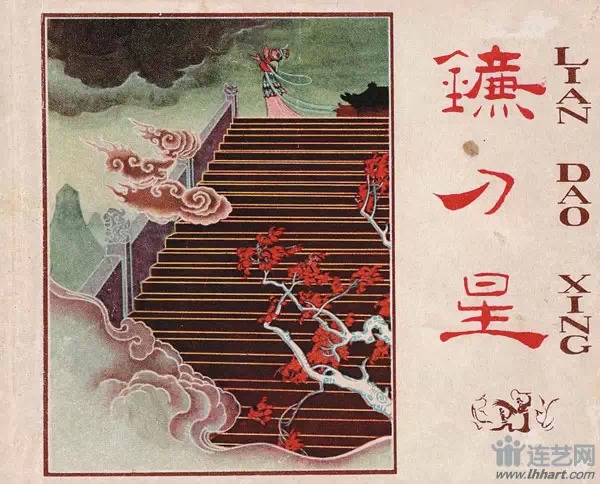 鐮刀星
LIAN DAO XING
连艺网
www.lhhart.com